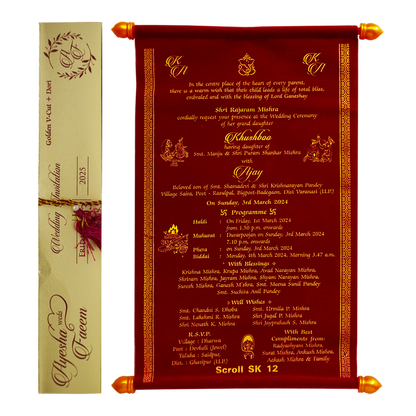 Golden V-Cut + Dori
Wedding Invitation
2025
Ayesha weds
Faeem
K
A
K
A
In the centre place of the heart of every parent,
there is a warm wish that their child leads a life of total bliss,
embraled and with the blessing of Lord Ganeshay
Shri Rajaram Mishra
cordially request your presence at the Wedding Ceremony
of her grand daughter
Khushboo
having daughter of
Smt. Manju & Shri Puram Shankar Mishra
with
Ajay
Beloved son of Smt. Shanadevi & Shri Krishnanayan Pandey
Village Saina, Post - Rasulpal, Bigpost-Badegaon, Dist Varanasi (U.P.)
On Sunday, 3rd March 2024
Programme
Haldi : On Friday, 1st March 2024
from 1.50 p.m. onwards
Maharat : Dwarpoojan on Sunday, 3rd March 2024
7.10 p.m. onwards
Phera : on Sunday, 3rd March 2024
Biddai : Monday, 4th March 2024, Morning 3.47 a.m.
With Blessings
Krishna Mishra, Krupa Mishra, Avad Narayan Mishra,
Shriram Mishra, Jayram Mishra, Shyam Narayan Mishra,
Suresh Mishra, Ganesh Mishra, Smt. Meena Sunil Pandey
Smt. Suchita Anil Pandey
Will Wishes
Smt. Chandra S. Dhaba
Smt. Urmila P. Mishra
Smt. Lakshmi R. Mishra
Shri Jugal P. Mishra
Shri Nenath K. Mishra
Shri Jayprakash S. Mishra
R.S.V.P.
Village : Dharwa
Post - Devhali (Jewel)
Taluka : Saidpur,
Dist. : Ghazipur (U.P.)
With Best
Compliments from:
Radynahyam Mishra,
Surat Mishra, Avkash Mishra,
Aakash Mishra & Family
Scroll SK 12